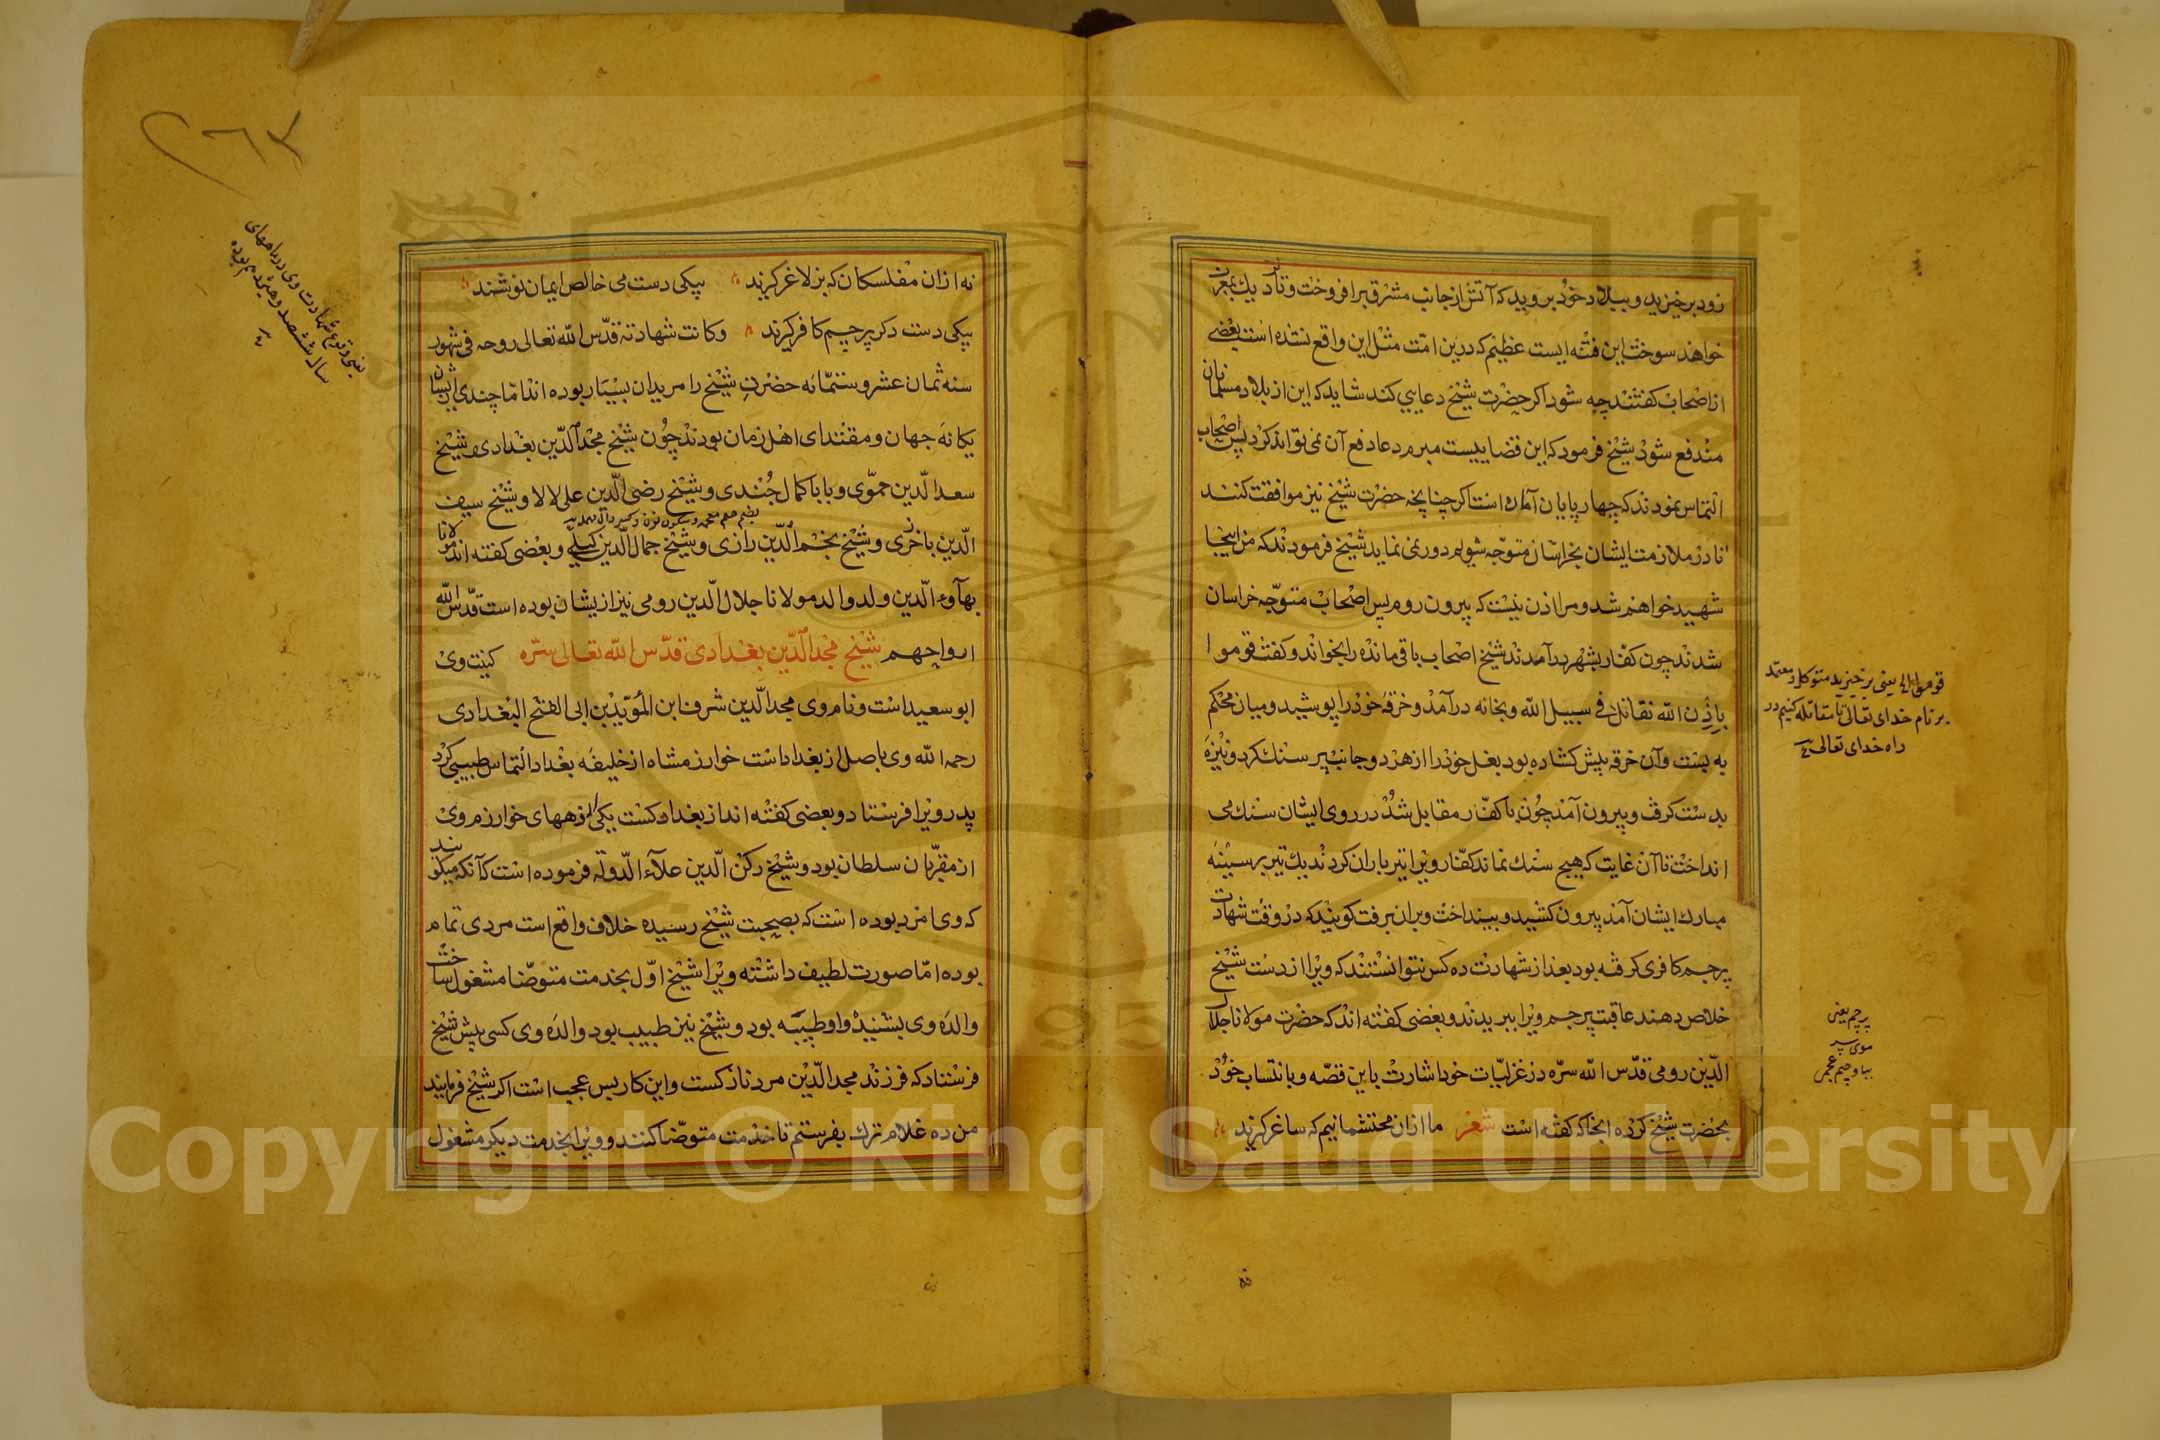 زود برخیزید و ببلاد خود بروید که آتش از جانب مشرق برافروخت و تا نزدیک بمغرب
خواهند سوخت این فتنه ایست عظیم که درین امّت مثل این واقع نشده است بعضی
از اصحاب کفتند چه شود اکر حضرت شیخ دعایی کند شاید که این از بلاد مسلمانان
مندفع شود شیخ فرمود که این قضاییست مبرم دعا دفع آن نمی تواند کرد پس اصحاب
التماس نمودند که چهارپایان آماده است اکر چنانچه حضرت شیخ نیز موافقت کنند
تا در ملازمت ایشان بخراسان متوجّه شویم دور نمی نماید شیخ فرمودند که من اینجا
شهید خواهم شد و مرا اذن نیست که بیرون روم پس اصحاب متوجّه خراسان
شدند چون کفّار بشهر درآمدند شیخ اصحاب باقی مانده را بخواند و کفت قوموا
باذن الله نقاتل فی سبیل الله و بخانه درآمد و خرقهٔ خود را پوشید و میان محکم
به بست و آن خرقه پیش کشاده بود بغل خود را از هر دو جانب پر سنک کرد و نیزهٔ
بدست کرفت و بیرون آمد چون با کفّار مقابل شد در روی ایشان سنک می
انداخت تا آن غایت که هیچ سنک نماند کفّار ویرا تیرباران کردند یک تیر بر سینهٔ
مبارک ایشان آمد بیرون کشید و بینداخت و بران برفت کویند که در وقت شهادت
پرچم کافری کرفته بود بعد از شهادت ده کس نتوانستند که ویرا از دست شیخ
خلاص دهند عاقبت پرچم ویرا ببریدند و بعضی کفته اند که حضرت مولانا جلال
الدّین رومی قدّس الله سرّه در غزلیّات خود اشارت باین قصّه و بانتساب خود
بحضرت شیخ کرده انجا که کفته است شعر ما ازان محتشمانیم که ساغر کرند
قوموا الخ یعنی برخیزید متوکل و معتمد
بر نام خدای تعالی تا مقاتله کنیم در
راه خدای تعالی
پرچم یعنی
موی سر
نه ازان مفلسکان که بز لاغر کیرند بیکی دست می خالص ایمان نوشند
بیکی دست دکر پرچم کافر کیرند و کانت شهادته قدّس الله تعالی روحه فی شهور
سنه ثمان عشر و ستمّائه حضرت شیخ را مریدان بسیار بوده اند امّا چندی ازیشان
یکانهٔ جهان و مقتدای اهل زمان بودند چون شیخ مجد الدّین بغدادی و شیخ
سعد الدّین حمّوی و بابا کمال جندی و شیخ رضی الدّین علی لالا و شیخ سیف
الدّین باخرزی و شیخ نجم الدّین رازی و شیخ جمال الدّین کیلی و بعضی کفته اند مولانا
بهآء الدّین ولد والد مولانا جلال الدّین رومی نیز ازیشان بوده است قدّس الله
ارواحهم شیخ مجد الدّین بغدادی قدّس الله تعالی سرّه کنیت وی
ابو سعید است و نام وی مجد الدّین شرف ابن المؤیّد بن ابی الفتح البغدادی
رحمه الله وی باصل از بغداد است خوارزمشاه از خلیفهٔ بغداد التماس طبیبی کرد
پدر ویرا فرستاد و بعضی کفته اند از بغدادکست یکی از دههای خوارزم وی
از مقرّبان سلطان بود و شیخ رکن الدّین علآء الدّوله فرموده است که آنکه میکویند
که وی امرد بوده است که بصحبت شیخ رسیده خلاف واقع است مردی تمام
بوده امّا صورت لطیف داشته ویرا شیخ اوّل بخدمت متوضّا مشغول ساخت
والدهٔ وی بشنید و او طبیبه بود و شیخ نیز طبیب بود والدهٔ وی کسی پیش شیخ
فرستاد که فرزند مجد الدّین مرد نازکست و این کار بس عجب است اکر شیخ فرمایند
من ده غلام ترک بفرستم تا خدمت متوضّا کنند و ویرا بخدمت دیکر مشغول
یعنی وقوع شهادت وی در ماههای
سال ششصد و هیژدهم بوده
٢٦٧
Copyright © King Saud University
1957